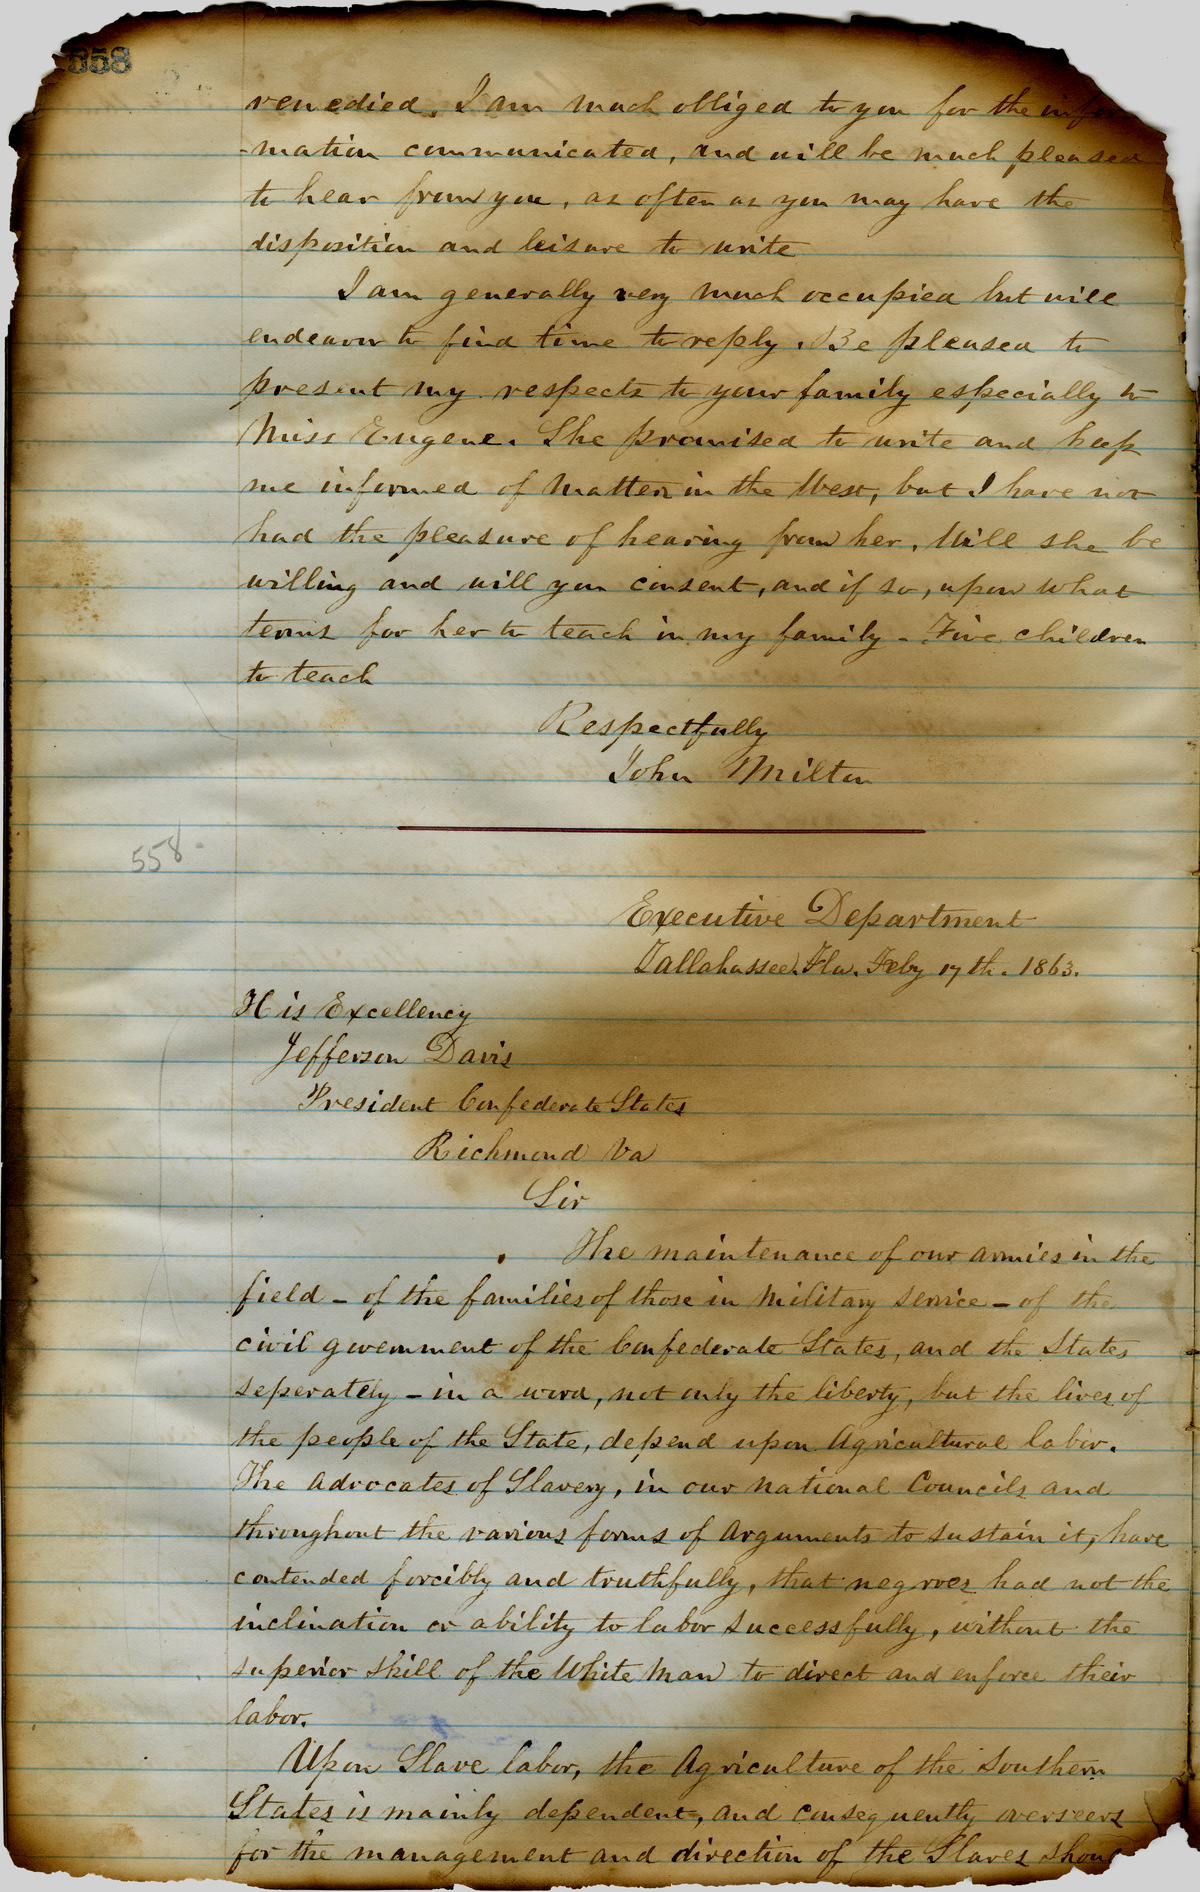 558
remedied. I am much obliged to you for the infor
-mation communicated, and will be much pleased
to hear from you, as often as you may have the
disposition and leisure to write
I am generally very much occupied but will
endeavor to find time to reply. Be pleased to
present my respects to your family especially to
Miss Eugene. She promised to write and keep
me informed of matters in the West, but I have not
had the pleasure of hearing from her. Will she be
willing and will you consent, and if so, upon what
terms for her to teach in my family - Five children
to teach
Respectfully
John Milton
558.
Executive Department
Tallahassee. Fla. Feby 17th. 1863.
His Excellency
Jefferson Davis
President Confederate States
Richmond Va
Sir
The maintenance of our armies in the
field - of the families of those in military service - of the
civil government of the Confederate States, and the States
seperately - in a word, not only the liberty, but the lives of
the people of the State, depend upon Agricultural labor.
The advocates of Slavery, in our national Councils and
throughout the various forms of Arguments to sustain it, have
contended forcibly and truthfully, that negroes had not the
inclination or ability to labor successfully, without the
superior skill of the White man to direct and enforce their
labor.
Upon Slave labor, the Agriculture of the Southern
States is mainly dependent, and consequently overseers
for the management and direction of the Slaves shou